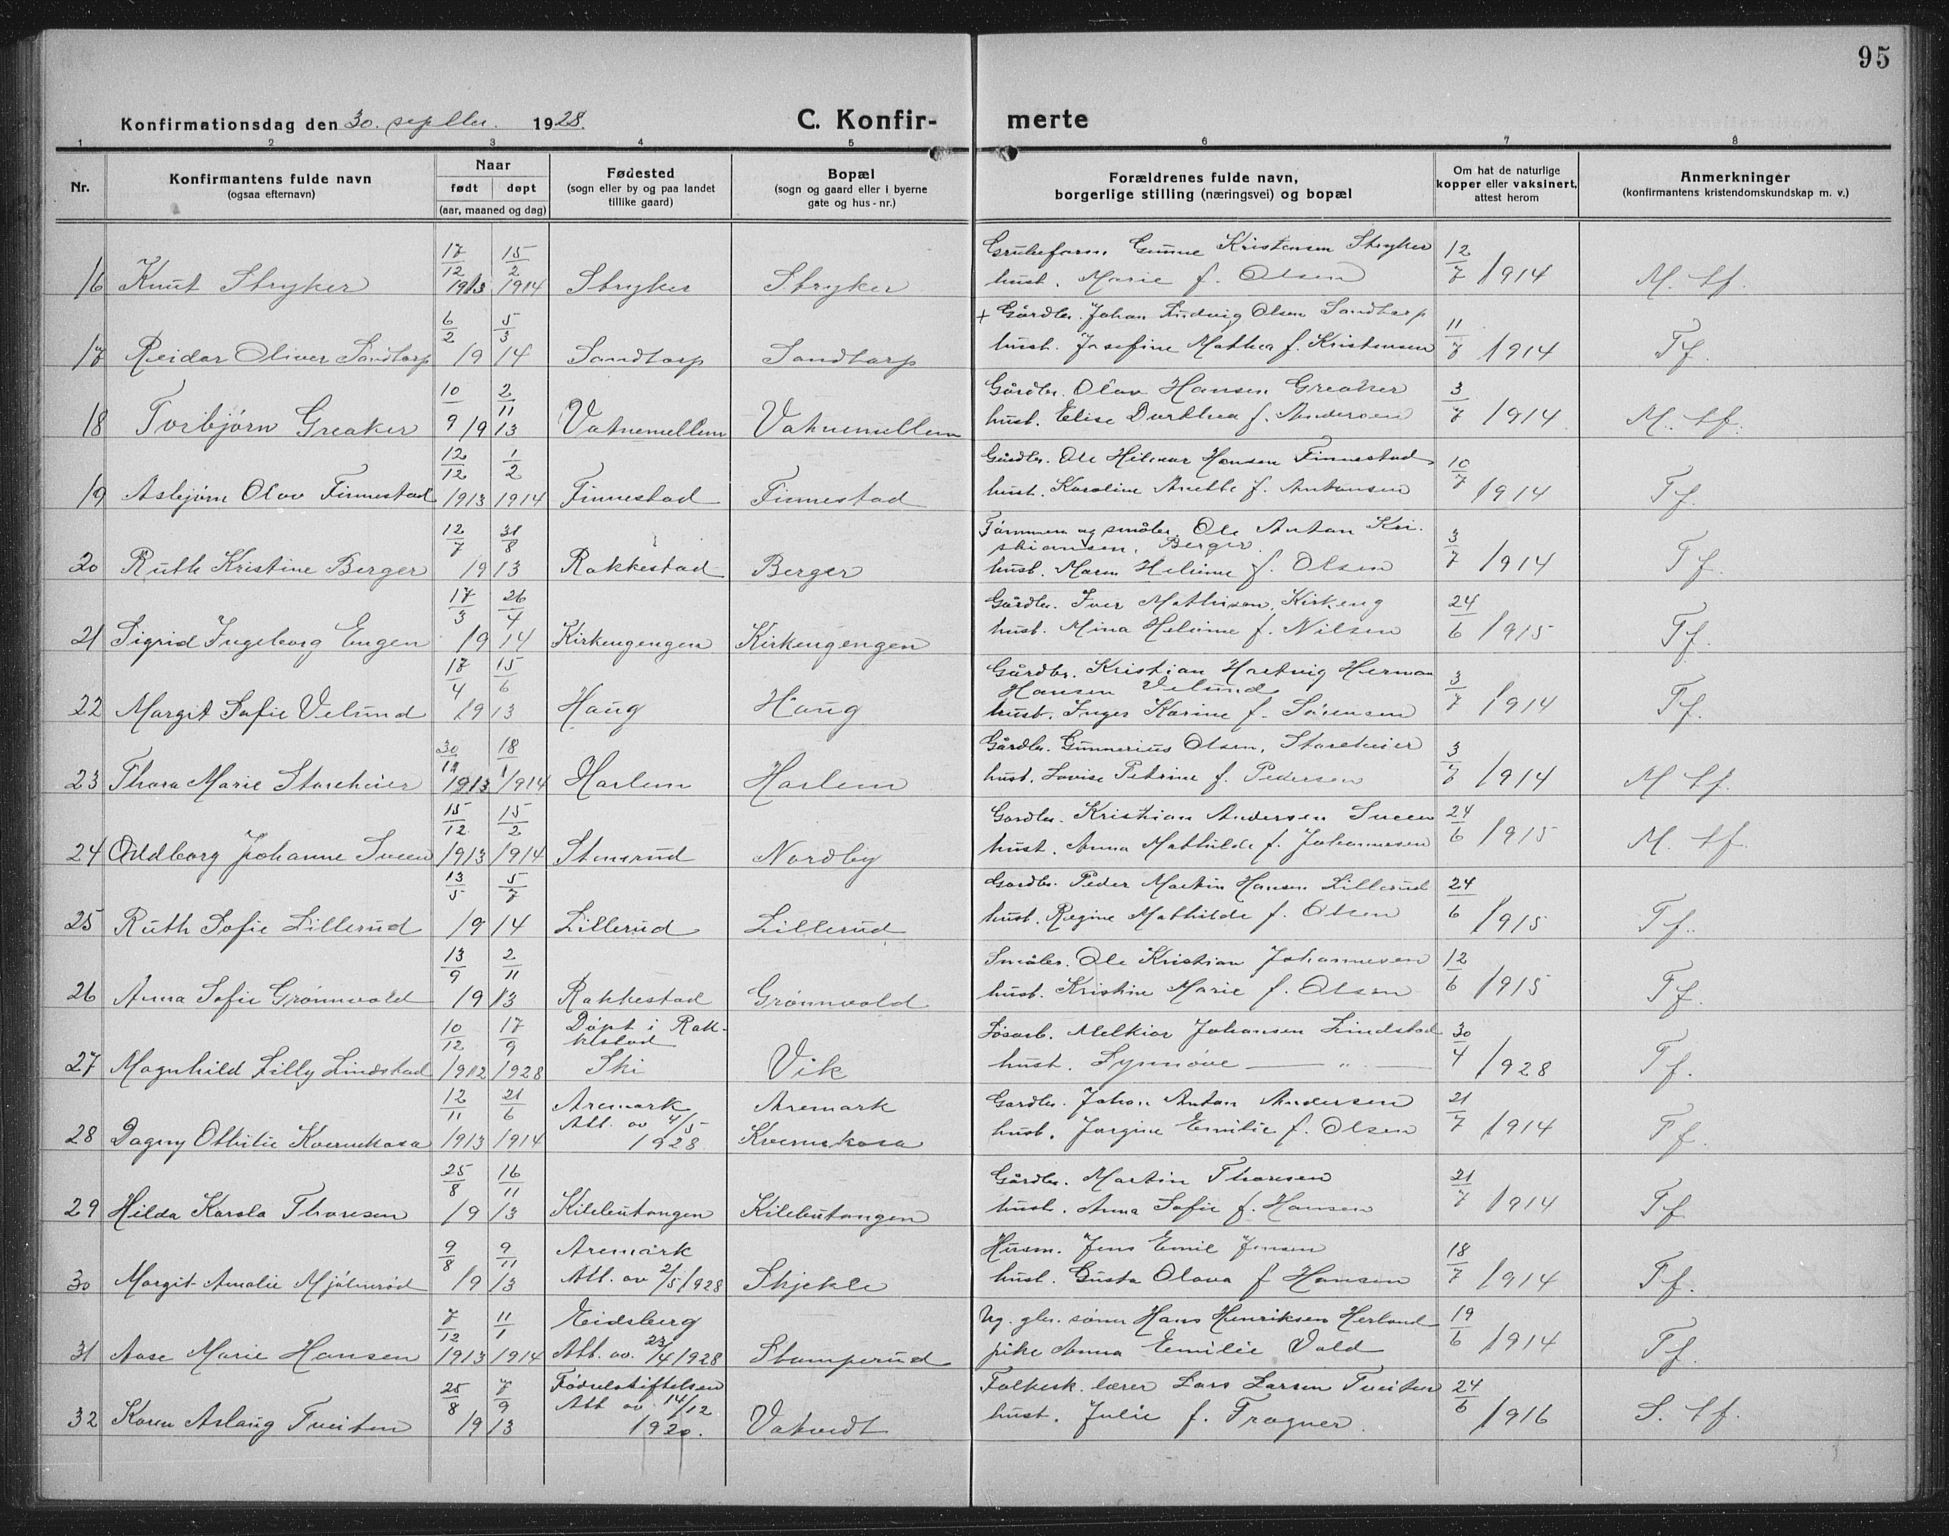 95
Konfirmationsdag den 30. septbr. 1928.
C. Konfirmerte
1 2 3 4 5 6 7 8
Nr.
Konfirmantens fulde navn
(ogsaa efternavn)
Naar
født døpt
(aar, maaned og dag)
Fødested
(sogn eller by og paa landet
tillike gaard)
Bopæl
(sogn og gaard eller i byerne
gate og hus-nr.)
Forældrenes fulde navn,
borgerlige stilling (næringsvei) og bopæl
Om hat de naturlige
kopper eller vaksinert,
attest herom
Anmerkninger
(konfirmantens kristendomskundskap m. v.)
16 Knut Stryker 17/12 1913 15/2 1914 Stryker Stryker Grubeform. Gunne Kristensen Stryker
hust. Marie f. Olsen 12/7 1914 M. tf.
17 Reidar Oliver Sandtorp 6/2 5/3 1914 Sandtorp Sandtorp + Gårdbr. Johan Ludvig Olsen Sandtorp
hust. Josefine Mathea f. Kristensen 11/7 1914 Tf.
18 Torbjørn Greaker 10/9 2/11 1913 Vatvemellem Vatvemellem Gårdbr. Olav Hansen Greaker
hust. Elise Dorthea f. Andersen 3/7 1914 M. tf.
19 Asbjørn Olav Finnestad 12/12 1913 1/2 1914 Finnestad Finnestad Gårdbr. Ole Hilmar Hansen Finnestad
hust. Karoline Anette f. Antonsen 10/7 1914 Tf.
20 Ruth Kristine Berger 12/7 31/8 1913 Rakkestad Berger Tømmerm og småbr. Ole Anton Kri-
stiansen, Berger
hust. Maren Helene f. Olsen 3/7 1914 Tf.
21 Sigrid Ingeborg Engen 17/3 26/4 1914 Kirkengengen Kirkengengen Gårdbr. Iver Mathisen, Kirkeng
hust. Mina Helene f. Nilsen 24/6 1915 Tf.
22 Margit Sofie Velund 17/4 15/6 1913 Haug Haug Gårdbr. Kristian Hartvig Herman
Hansen Velund
hust. Inger Karine f. Sørensen 3/7 1914 Tf.
23 Thora Marie Storeheier 30/12 1913 18/1 1914 Harlem Harlem Gårdbr. Gunnerius Olsen, Storeheier
hust. Lovise Petrine f. Pedersen 3/7 1914 M. tf.
24 Oddborg Johanne Sveen 15/12 1913 15/2 1914 Stensrud Nordby Gardbr. Kristian Andersen Sveen
hust. Anna Mathilde f. Johannesen 24/6 1915 M. tf.
25 Ruth Sofie Lillerud 13/5 5/7 1914 Lillerud Lillerud Gardbr. Peder Martin Hansen Lillerud
hust. Regine Mathilde f. Olsen 24/6 1915 Tf.
26 Anna Sofie Grønnvold 13/9 2/11 1913 Rakkestad Grønnvold Småbr. Ole Kristian Johannesen
hust. Kristine Marie f. Olsen 12/6 1915 Tf.
27 Magnhild Lilly Lindstad 10/12 1912 17/9 1928 Døpt i Rak-
kestad
Ski Vik Løsarb. Melkior Johansen Lindstad
hust. Synnøve — „ — 30/4 1928 Tf.
28 Dagny Othilie Kvernekosa 12/11 1913 21/6 1914 Aremark
Att. av 4/5
1928 Aremark
Kvernekosa Gardbr. Johan Anton Andersen
hust. Jørgine Emilie f. Olsen 21/7 1914 Tf.
29 Hilda Karola Thoresen 25/8 16/11 1913 Kilebutangen Kilebutangen Gårdbr. Martin Thoresen
hust. Anna Sofie f. Hansen 21/7 1914 Tf.
30 Margit Amalie Mjølnerød 9/8 9/11 1913 Aremark
Att. av 2/5 1928 Skjekle Husm. Jens Emil Jensen
hust. Gusta Olava f Hansen 18/7 1914 Tf.
31 Aase Marie Hansen 7/12 1913 11/1 1914 Eidsberg
Att. av. 23/4 1928 Stomperud Ug. gbr. sønn Hans Henriksen Herland
pike Anna Emilie Vold 19/6 1914 Tf.
32 Karen Aslaug Tveiten 25/8 7/9 1913 Fødselstiftelsen
Att. av. 14/12
1920. Vatvedt Folkesk. lærer Lars Larsen Tveiten
hust. Julie f. Frogner. 24/6 1916 S. tf.